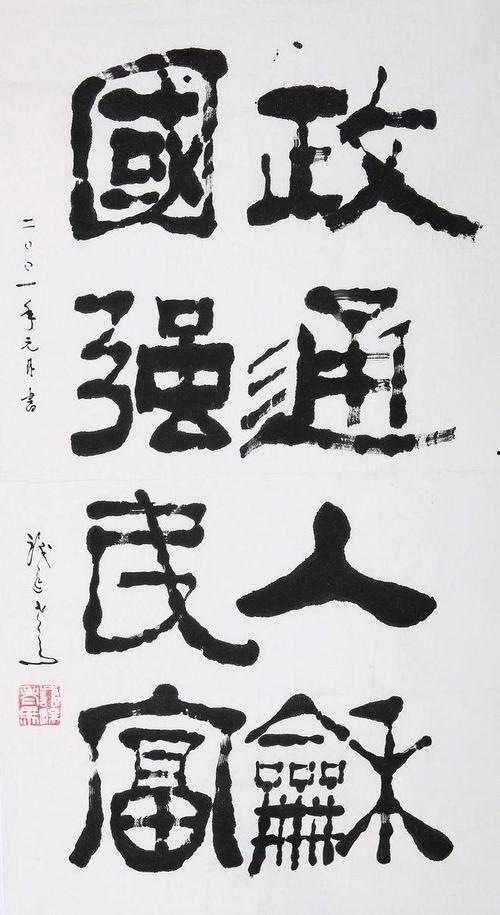 政通人龢
國强民富
二〇〇一年元月書